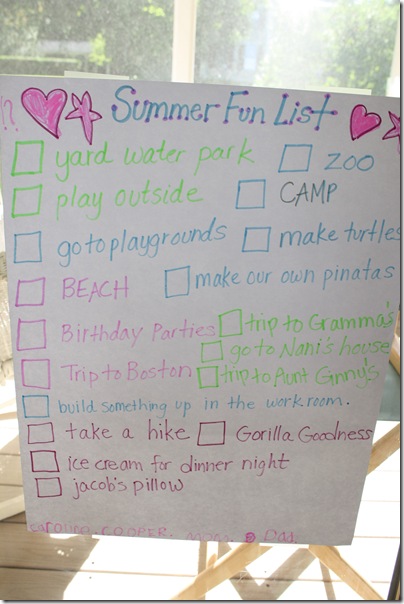 !? Summer Fun List
yard water park ZOO
play outside CAMP
go to playgrounds make turtles
BEACH make our own pinatas
Birthday Parties trip to Gramma's
go to Nani's house
Trip to Boston trip to Aunt Ginny's
build something up in the work room.
take a hike Gorilla Goodness
ice cream for dinner night
jacob's pillow
COOPER. Dad.